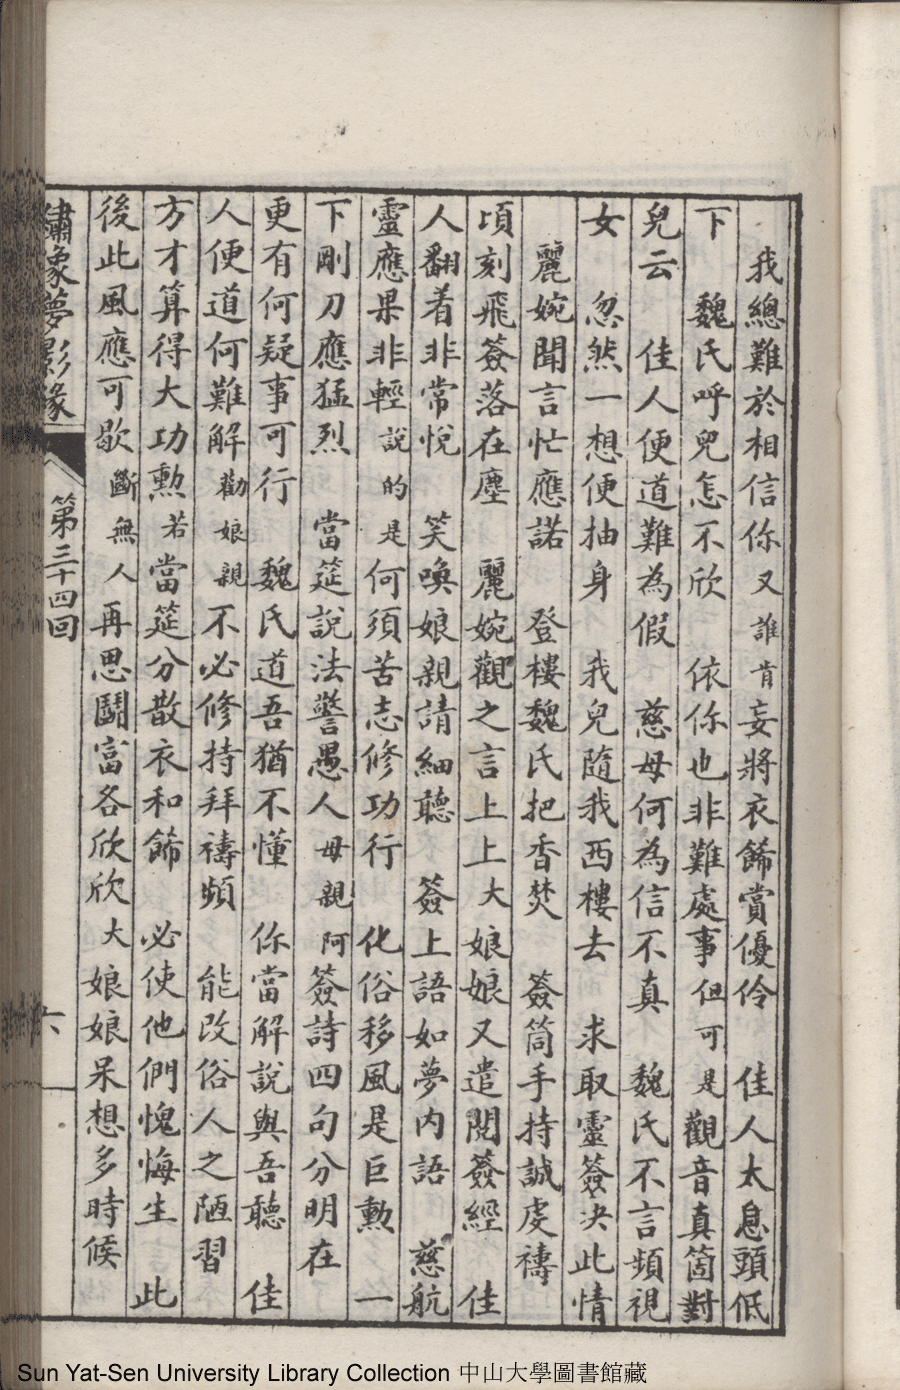 我總難於相信你又誰肯妄將衣餙賞優伶　佳人太息頭低
下　魏氏呼兒怎不欣　依你也非難處事但可是觀音真箇對
兒云　佳人便道難為假　慈母何為信不真　魏氏不言頻視
女　忽然一想便抽身　我兒隨我西樓去　求取靈簽决此情
麗婉聞言忙應諾　登樓魏氏把香焚　簽筒手持誠虔禱
頃刻飛簽落在塵　麗婉觀之言上上大娘娘又遣閱簽經　佳
人翻着非常悅　笑喚娘親請細聽　簽上語如夢内語　慈航
靈應果非輕說的是何須苦志修功行　化俗移風是巨勲　一
下剛刀應猛烈　當筵說法警愚人母親阿簽詩四句分明在
更有何疑事可行　魏氏道吾猶不懂　你當解說與吾聽　佳
人便道何難解勸娘親不必修持拜禱頻　能改俗人之陋習
方才算得大功勲若當筵分散衣和餙　必使他們愧悔生　此
後此風應可歇斷無人再思鬬富各欣欣大娘娘呆想多時候
繡像夢影緣　第三十四回　六
Sun Yat-Sen University Library Collection 中山大學圖書館藏